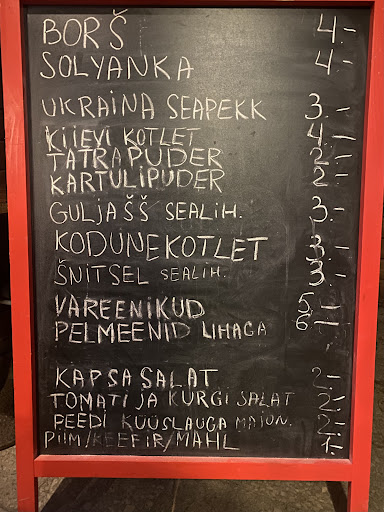 BORŠ 4.-
SOLYANKA 4.-
UKRAINA SEAPEKK 3.-
KIIEVI KOTLET 4.-
TATRAPUDER 2.-
KARTULIPUDER 2.-
GULJAŠŠ SEALIH. 3.-
KODUNEKOTLET 3.-
ŠNITSEL SEALIH. 3.-
VAREENIKUD 5-
PELMEENID LIHAGA 6-
KAPSASALAT 2.-
TOMATI JA KURGI SALAT 2.-
PEEDI KÜÜSLAUGA MAJON. 2.-
PIIM/KEEFIR/MAHL 1.-